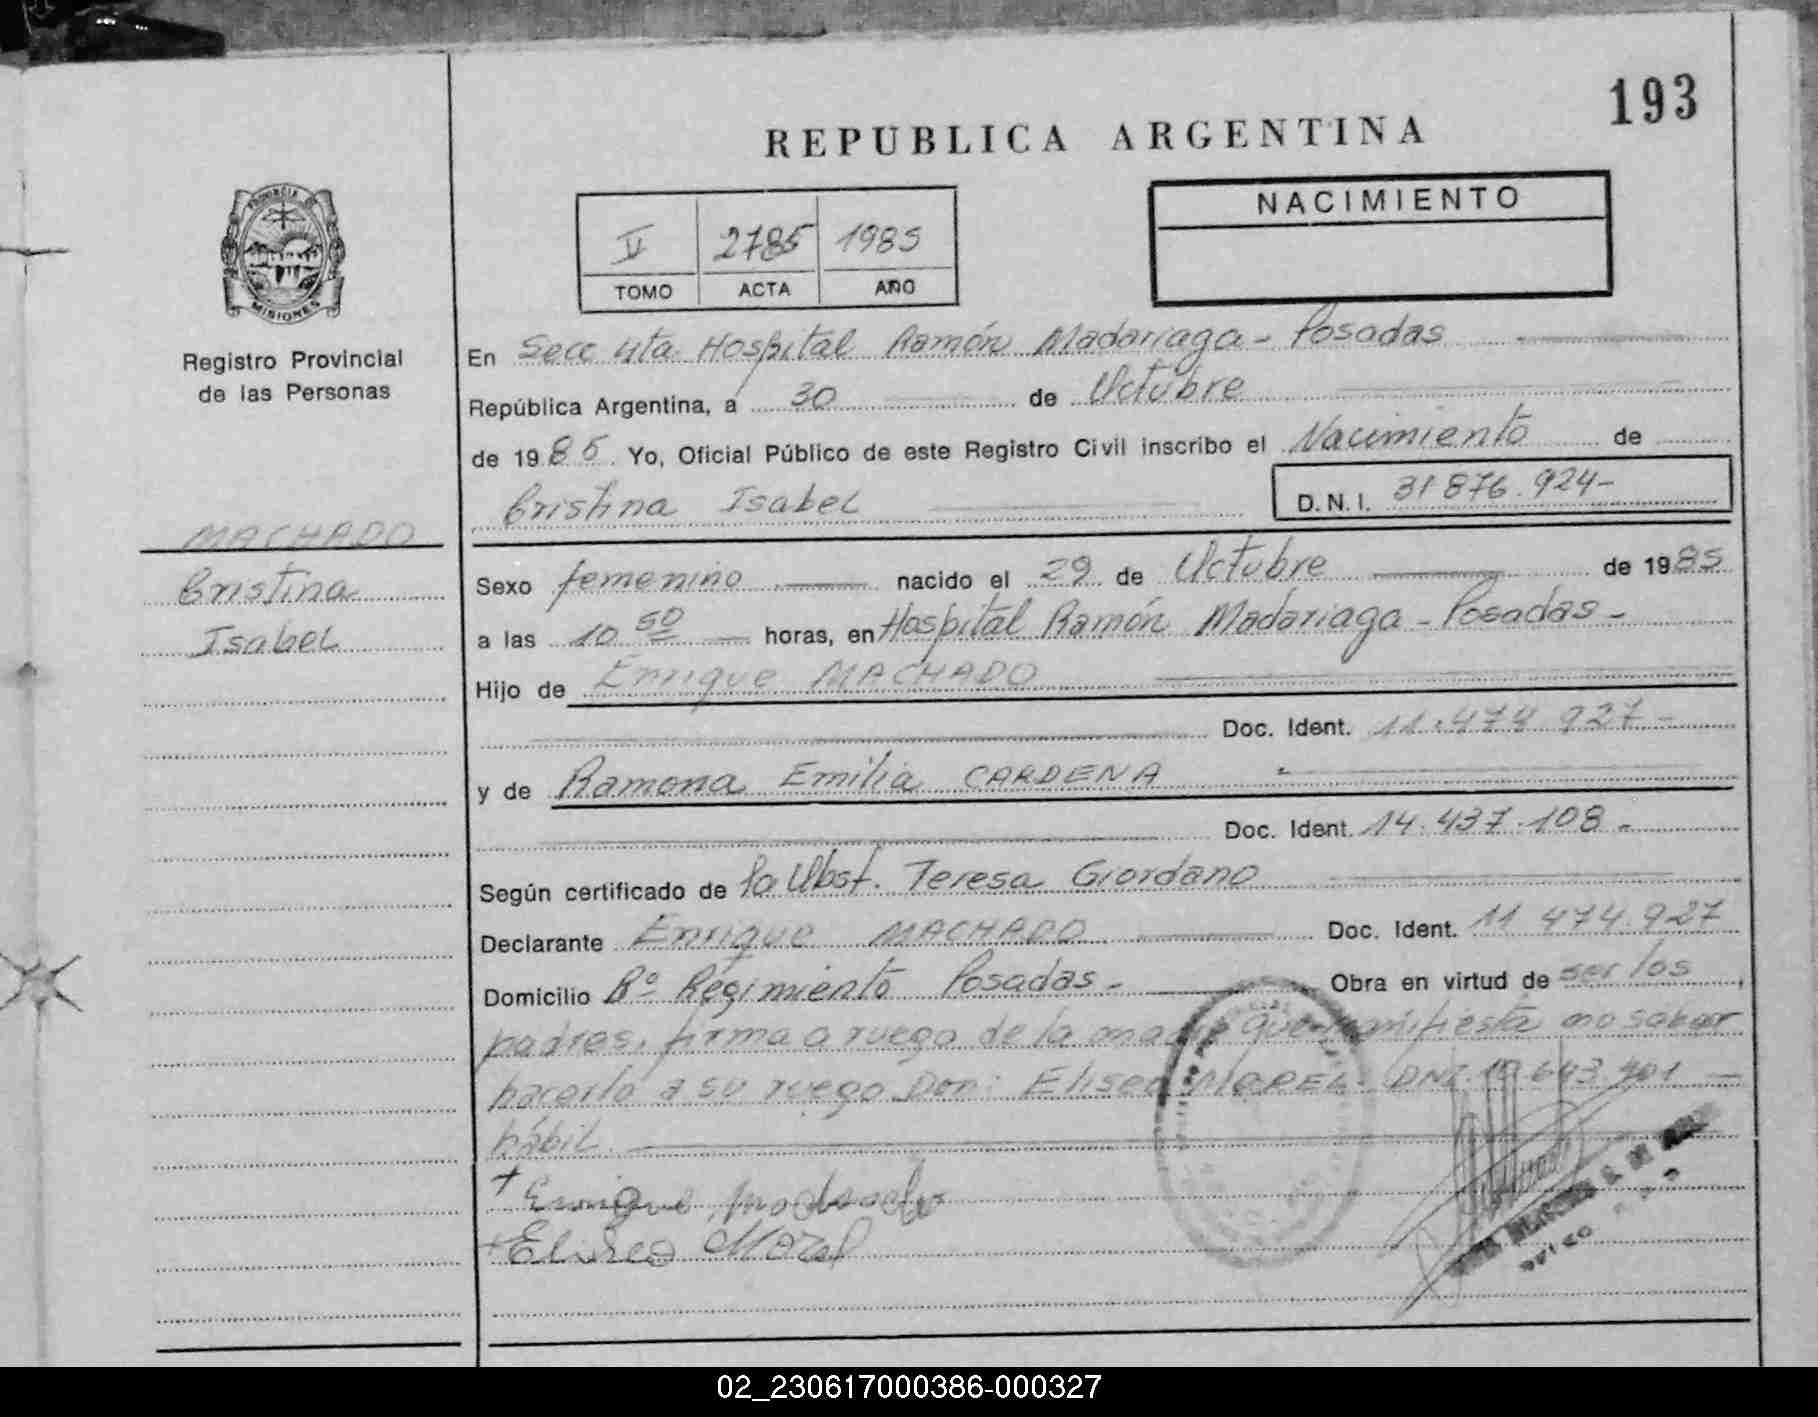 193
REPUBLICA ARGENTINA
NACIMIENTO
V 2785 1985
TOMO ACTA AÑO
PROVINCIA DE
MISIONES
Registro Provincial
de las Personas
MACHADO
Cristina
Isabel
En Secc 4ta. Hospital Ramón Madariaga - Posadas
República Argentina, a 30 de Octubre
de 1985. Yo, Oficial Público de este Registro Civil inscribo el Nacimiento de
Cristina Isabel D.N.I. 31 876.924-
Sexo femenino nacido el 29 de Octubre de 1985
a las 10 50 horas, en Hospital Ramón Madariaga - Posadas -
Hijo de Enrique MACHADO
Doc. Ident. 11.474.927-
y de Ramona Emilia CARDENA
Doc. Ident. 14.437.108-
Según certificado de la Obst. Teresa Giordano
Declarante Enrique MACHADO Doc. Ident. 11 474.927
Domicilio Bº Regimiento Posadas - Obra en virtud de ser los
padres, firma a ruego de la madre que manifiesta no saber
hacerlo a su ruego Don: Eliseo MOREL - DNI
hábil.
+ Enrique Machado
+ Eliseo Morel
02_230617000386-000327